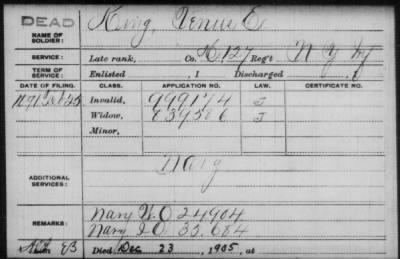 DEAD
NAME OF SOLDIER: King, Venus E
SERVICE: Late rank, Co. H, 127 Reg't N Y Inf
TERM OF SERVICE: Enlisted , 1 Discharged , 1
DATE OF FILING. CLASS. APPLICATION NO. LAW. CERTIFICATE NO.
1891 Feb 25 Invalid, 999174 J
Widow, 839586 J
Minor,
ADDITIONAL SERVICES: Navy
REMARKS: Navy W.O. 24904
Navy I O. 35.684
Died Dec 23, 1905, at